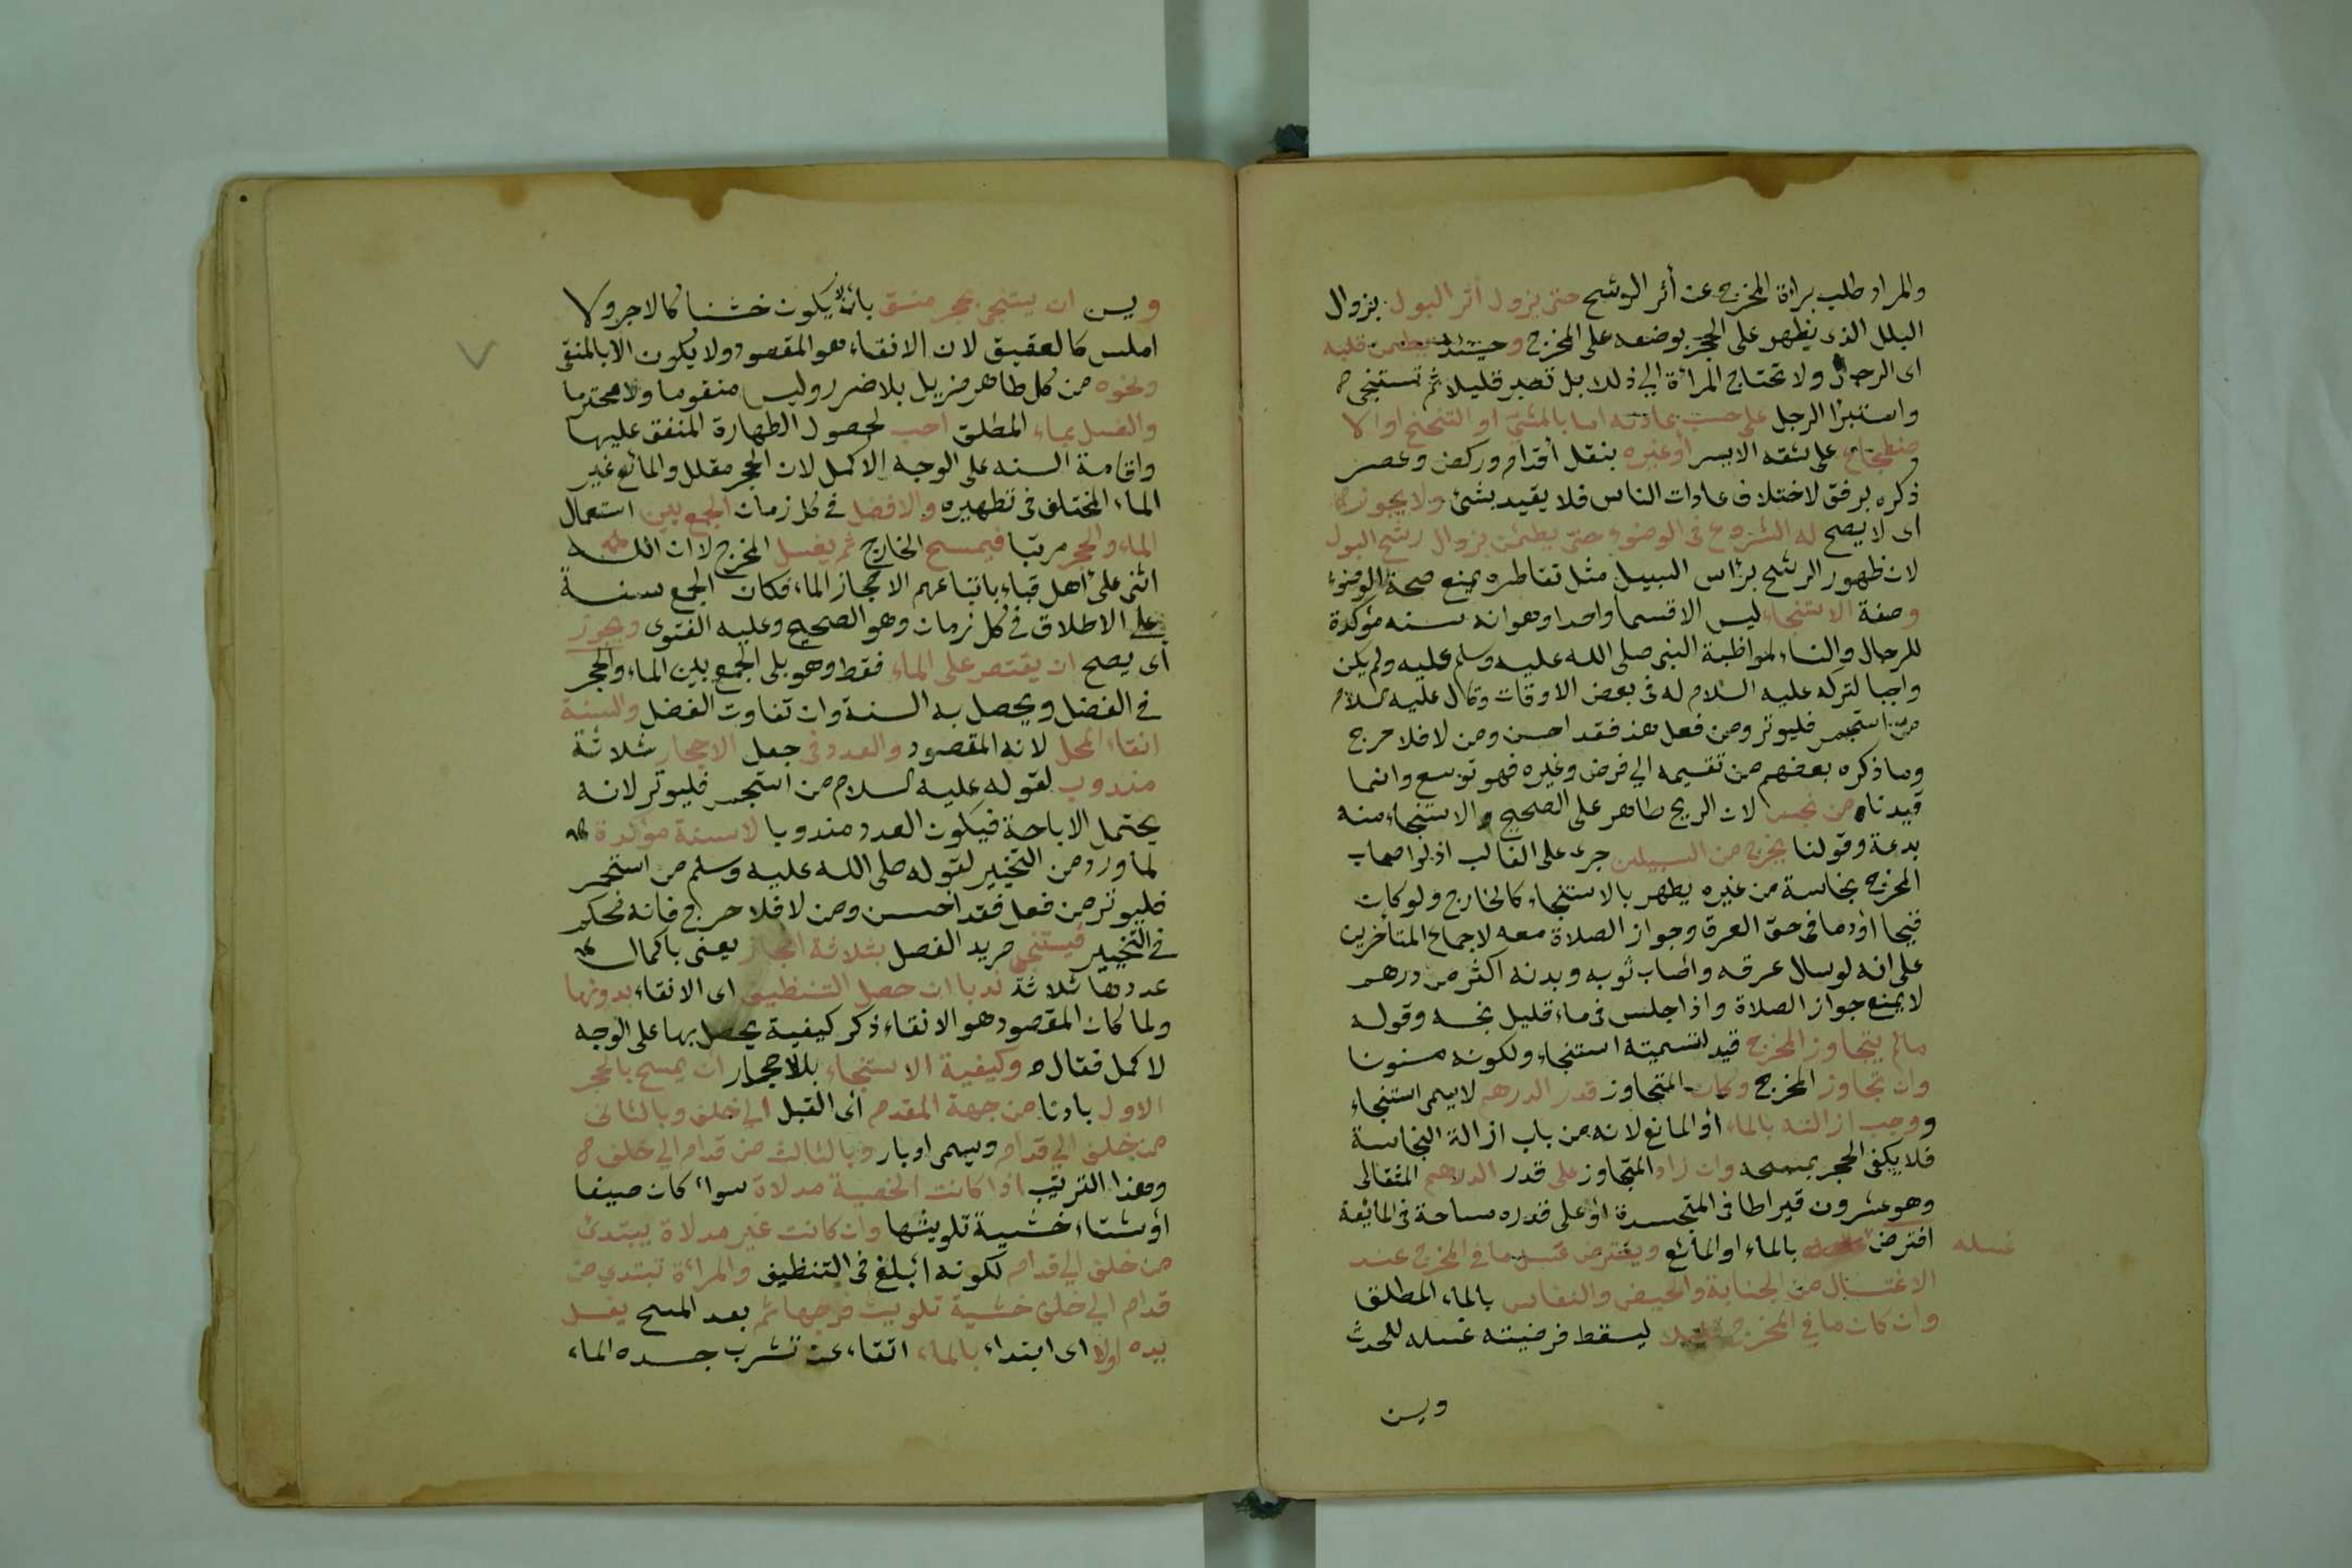 والمراد طلب براءة المخرج عن أثر الرشح حتى يزول أثر البول بزوال
البلل الذى يظهر على الحجر بوضعه على المخرج وحينئذ يطمئن قلبه
اى الرجل ولا تحتاج المرأة الى ذلك بل تصبر قليلا ثم تستنجى
واستبرا الرجل على حسب عادته اما بالمشى او التنحنح او الا
ضطجاع على شقه الايسر أو غيره بنقل أقدام وركض وعصر
ذكره برفق لاختلاف عادات الناس فلا يقيد بشئ ولا يجوز
اى لا يصح له الشروع فى الوضوء حتى يطمئن بزوال رشح البول
لان ظهور الرشح براس السبيل مثل تقاطره يمنع صحة الوضوء
وصفة الاستنجاء ليس الا قسما واحدا وهو انه سنه مؤكدة
للرجال والنساء لمواظبة النبى صلى الله عليه وسلم عليه ولم يكن
واجبا لتركه عليه السلام له فى بعض الاوقات وقال عليه السلام
من استجمر فليوتر ومن فعل هذ فقد احسن ومن لا فلا حرج
وما ذكره بعضهم من تقسيمه الى فرض وغيره فهو توسع وانما
قيدناه من نجس لان الريح طاهر على الصحيح والاستنجاء منه
بدعة وقولنا يخرج من السبيلين جرى على الغالب اذ لو اصاب
المخرج نجاسة من غيره يطهر بالاستنجاء كالخارج ولو كان
قيحا او دما فى حق العرق وجواز الصلاة معه لاجماع المتأخرين
على انه لو سال عرقه واصاب ثوبه وبدنه اكثر من درهم
لا يمنع جواز الصلاة واذا جلس فى ماء قليل نجسه وقوله
مالم يتجاوز المخرج قيد لتسميته استنجاء ولكونه مسنونا
وان تجاوز المخرج وكان المتجاوز قدر الدرهم لا يسمى استنجاء
ووجب ازالته بالماء أو المائع لانه من باب ازالة النجاسة
فلا يكفى الحجر بمسحه وان زاد المتجاوز على قدر الدرهم المثقالى
وهو عشرون قيراطا فى المتجسدة أو على قدره مساحة فى المائعة
افترض غسله بالماء او المائع ويفترض غسل ما فى المخرج عند
الاغتسال من الجنابة والحيض والنفاس بالماء المطلق
وان كان ما فى المخرج قليلا ليسقط فرضيته غسله للحدث
ويسن
ويسن ان يستنجى بحجر منق بان يكون خشنا كالاجر ولا
املس كالعقيق لان الانقاء هو المقصود ولا يكون الا بالمنقى
ونحوه من كل طاهر مزيل بلا ضرر وليس متقوما ولا محترما
والغسل بماء المطلق احب لحصول الطهارة المتفق عليها
واقامة السنه على الوجه الاكمل لان الحجر مقلل والمائع غير
الماء المختلف فى تطهيره والافضل فى كل زمان الجمع بين استعمال
الماء والحجر مرتبا فيمسح الخارج ثم يغسل المخرج لان الله
اثنى على أهل قباء باتباعهم الاحجاز الماء فكان الجمع سنة
على الاطلاق فى كل زمان وهو الصحيح وعليه الفتوى ويجوز
أى يصح ان يقتصر على الماء فقط وهو يلى الجمع بين الماء والحجر
فى الفضل ويحصل به السنة وان تفاوت الفضل والسنة
انقاء المحل لانه المقصود والعدد فى جعل الاحجار ثلاثة
مندوب لقوله عليه السلام من استجمر فليوتر لانه
يحتمل الاباحة فيكون العدد مندوبا لا سنة مؤكدة
لما ورد من التخيير لقوله صلى الله عليه وسلم من استجمر
فليوتر من فعل فقد احسن ومن لا فلا حرج فانه محكم
فى التخيير فيستنجى مريد الفضل بثلاثة احجار يعنى باكمال
عددها ثلاثة ندبا ان حصل التنظيف اى الانقاء بدونها
ولما كان المقصود هو الانقاء ذكر كيفية يحصل بها على الوجه
لاكمل فقال وكيفية الاستنجاء بالاحجار ان يمسح بالحجر
الاول بادئا من جهة المقدم أى القبل الى خلف وبالثانى
من خلف الى قدام ويسمى ادبار وبالثالث من قدام الى خلف
وهذا الترتيب اذا كانت الخصية مدلاة سواء كان صيفا
أو شتاء خشية تلويثها وان كانت غير مدلاة يبتدئ
من خلف الى قدام لكونه ابلغ فى التنظيف والمرأة تبتدى من
قدام الى خلف خشية تلويث فرجها ثم بعد المسح يغسل
يده اولا اى ابتداء بالماء اتقاء عن تشرب جسده الماء